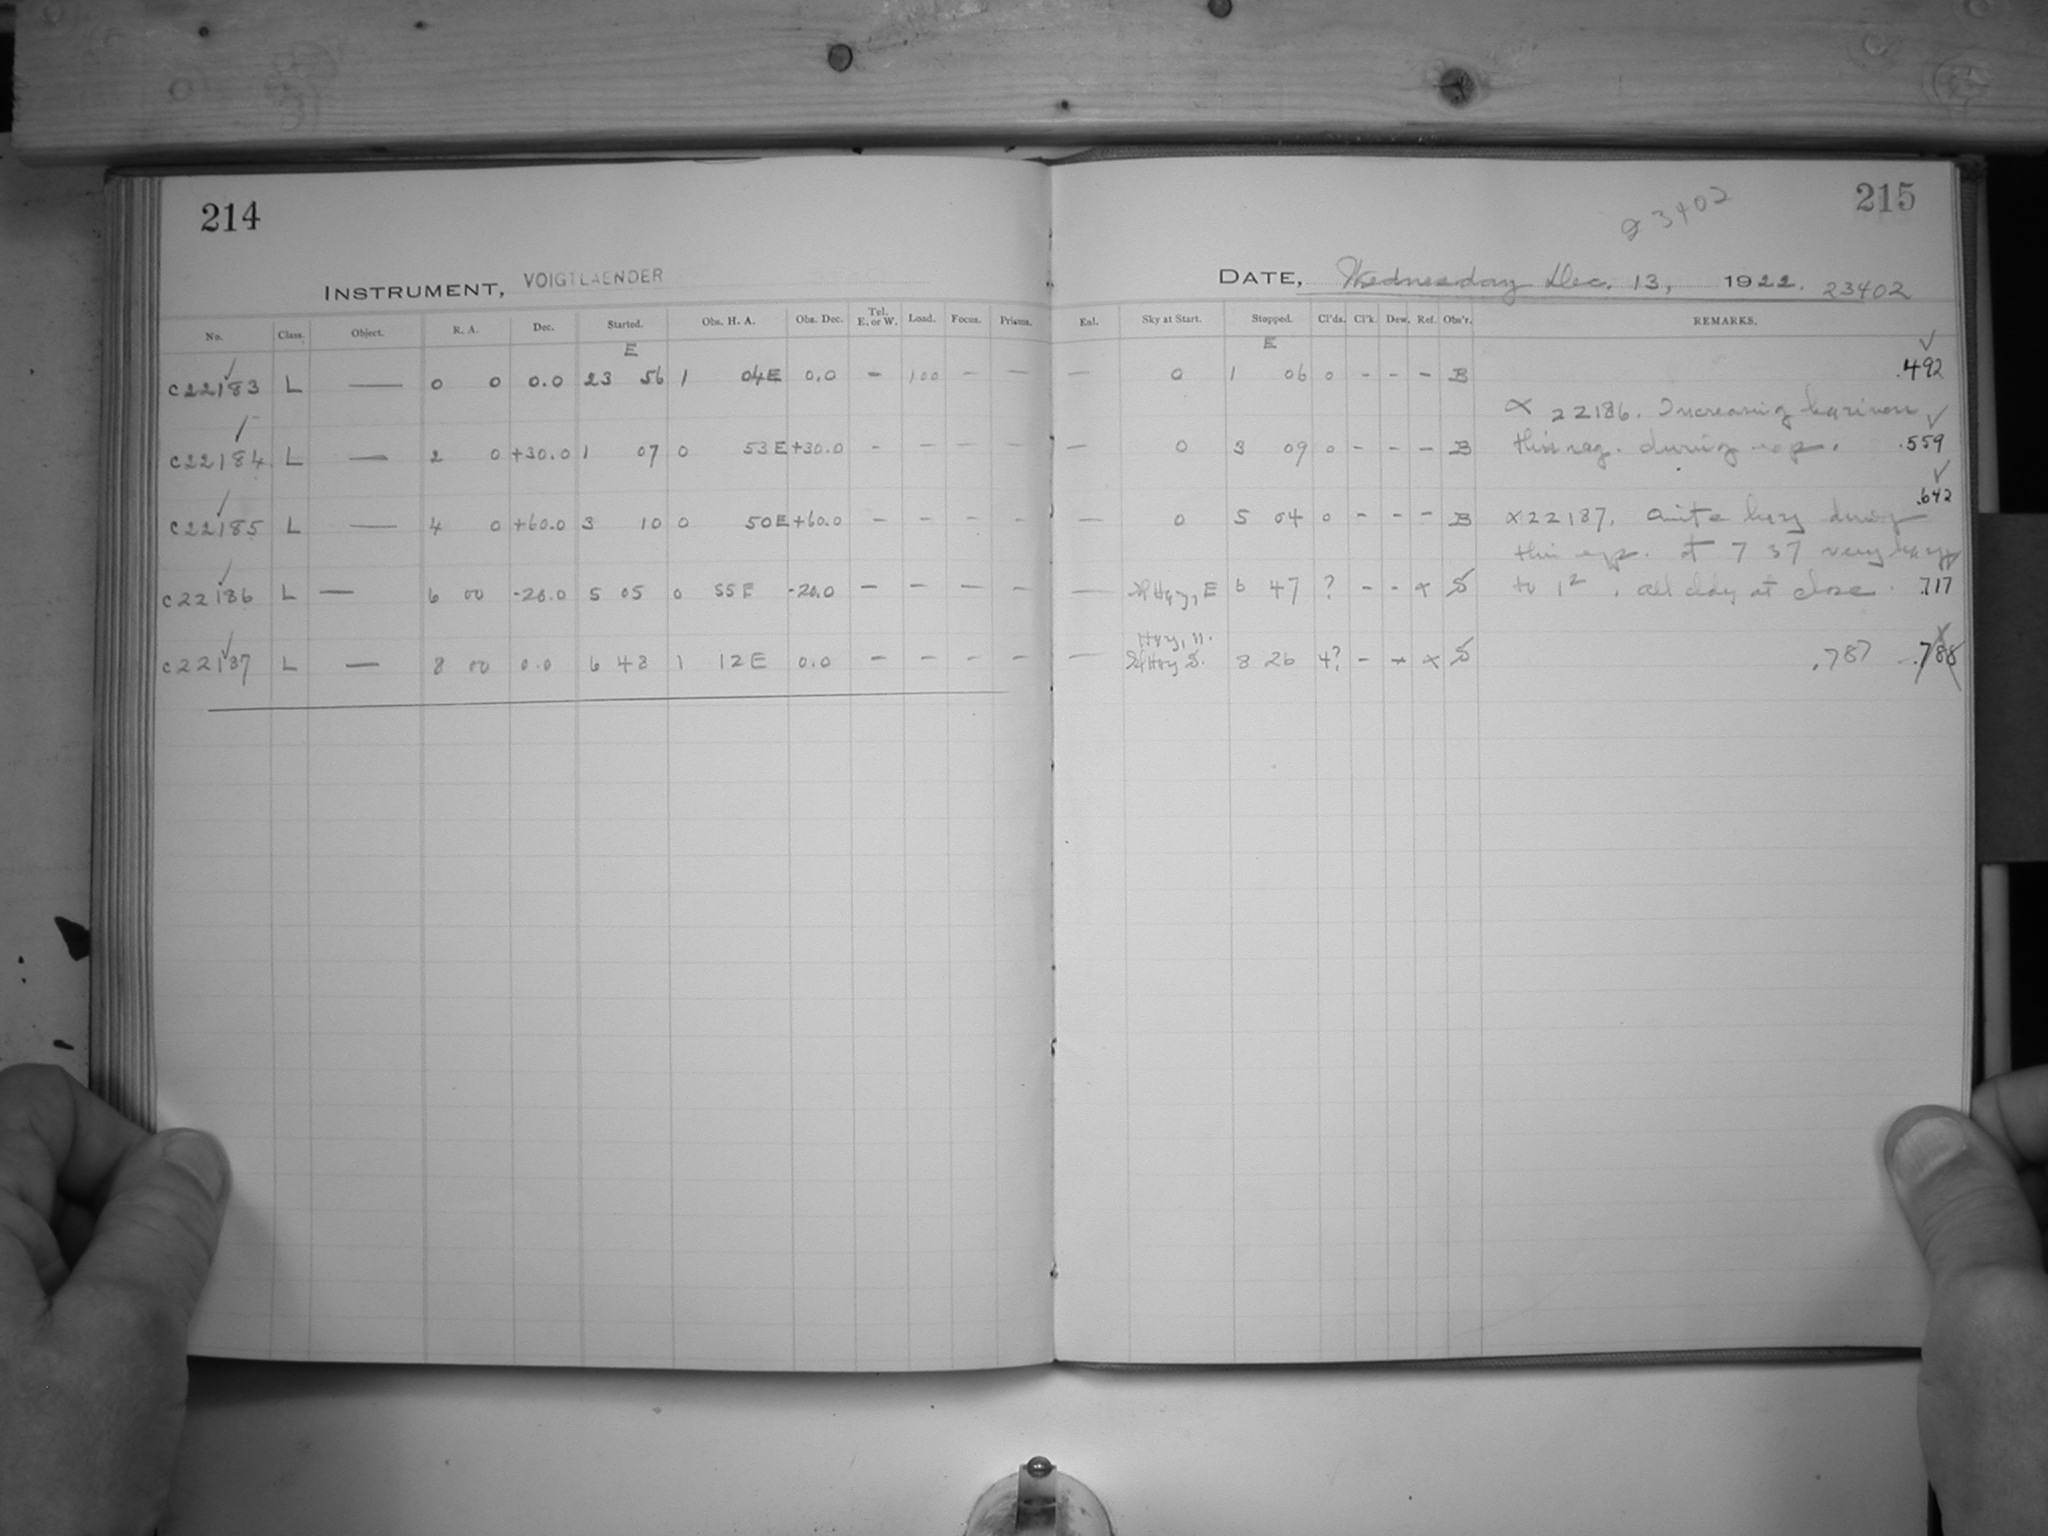 214
INSTRUMENT, VOIGTLAENDER
No. Class. Object. R. A. Dec. Started. Obs. H. A. Obs. Dec. Tel. E. or W. Load. Focus. Prisms.
E
c22183 L — 0 0 0.0 23 56 1 04E 0.0 – 100 – –
c22184 L — 2 0 +30.0 1 07 0 53E +30.0 – – – –
c22185 L — 4 0 +60.0 3 10 0 50E +60.0 – – – –
c22186 L — 6 00 -20.0 5 05 0 55E -20.0 – – – –
c22187 L — 8 00 0.0 6 48 1 12E 0.0 – – – –
23402
215
DATE, Wednesday Dec. 13, 1922. 23402
Enl. Sky at Start. Stopped. Cl'ds. Cl'k. Dew. Ref. Obs'r. REMARKS.
E
— 0 1 06 0 – – – B .492
x 22186. Increasing haziness
— 0 3 09 0 – – – B this reg. during exp. .559
.642
— 0 5 04 0 – – – B x22187. Quite hazy during
this exp. at 7 37 very hazy
— Hazy, E 6 47 ? – – x S to 12, all cldy at close. .717
Hazy, N.
— Hazy S. 8 26 4? – – x S .787 .788